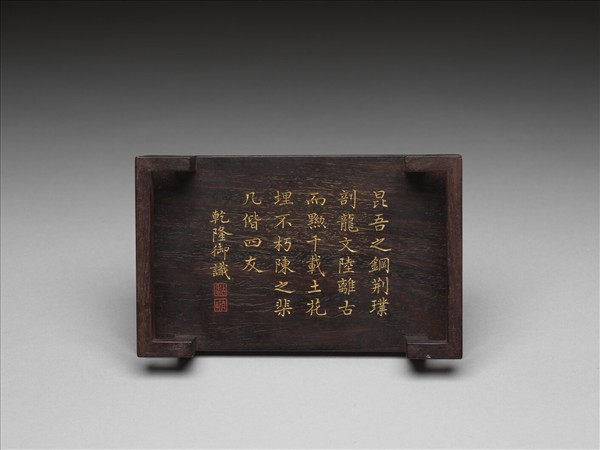 昆吾之鋼荆璞
剖龍文陸離古
而黝千載土花
埋不朽陳之棐
几偕四友
乾隆御識